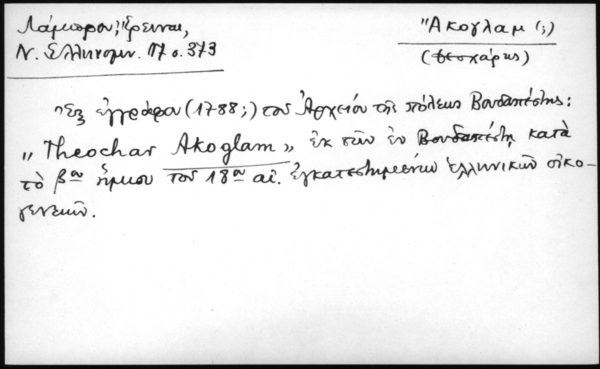 Λάμπρου, Ἔρευναι,
Ν. Ἑλληνομν. 17 σ. 373
"Ἀκογλαμ (;)
(Θεοχάρης)
Ἐξ ἐγγράφου (1788;) τοῦ Ἀρχείου τῆς πόλεως Βουδαπέστης:
„Theochar Akoglam„ ἐκ τῶν ἐν Βουδαπέστῃ κατὰ
τὸ βον ἥμισυ τοῦ 18ου αἰ. ἐγκατεστημένων ἑλληνικῶν οἰκο-
γενειῶν.